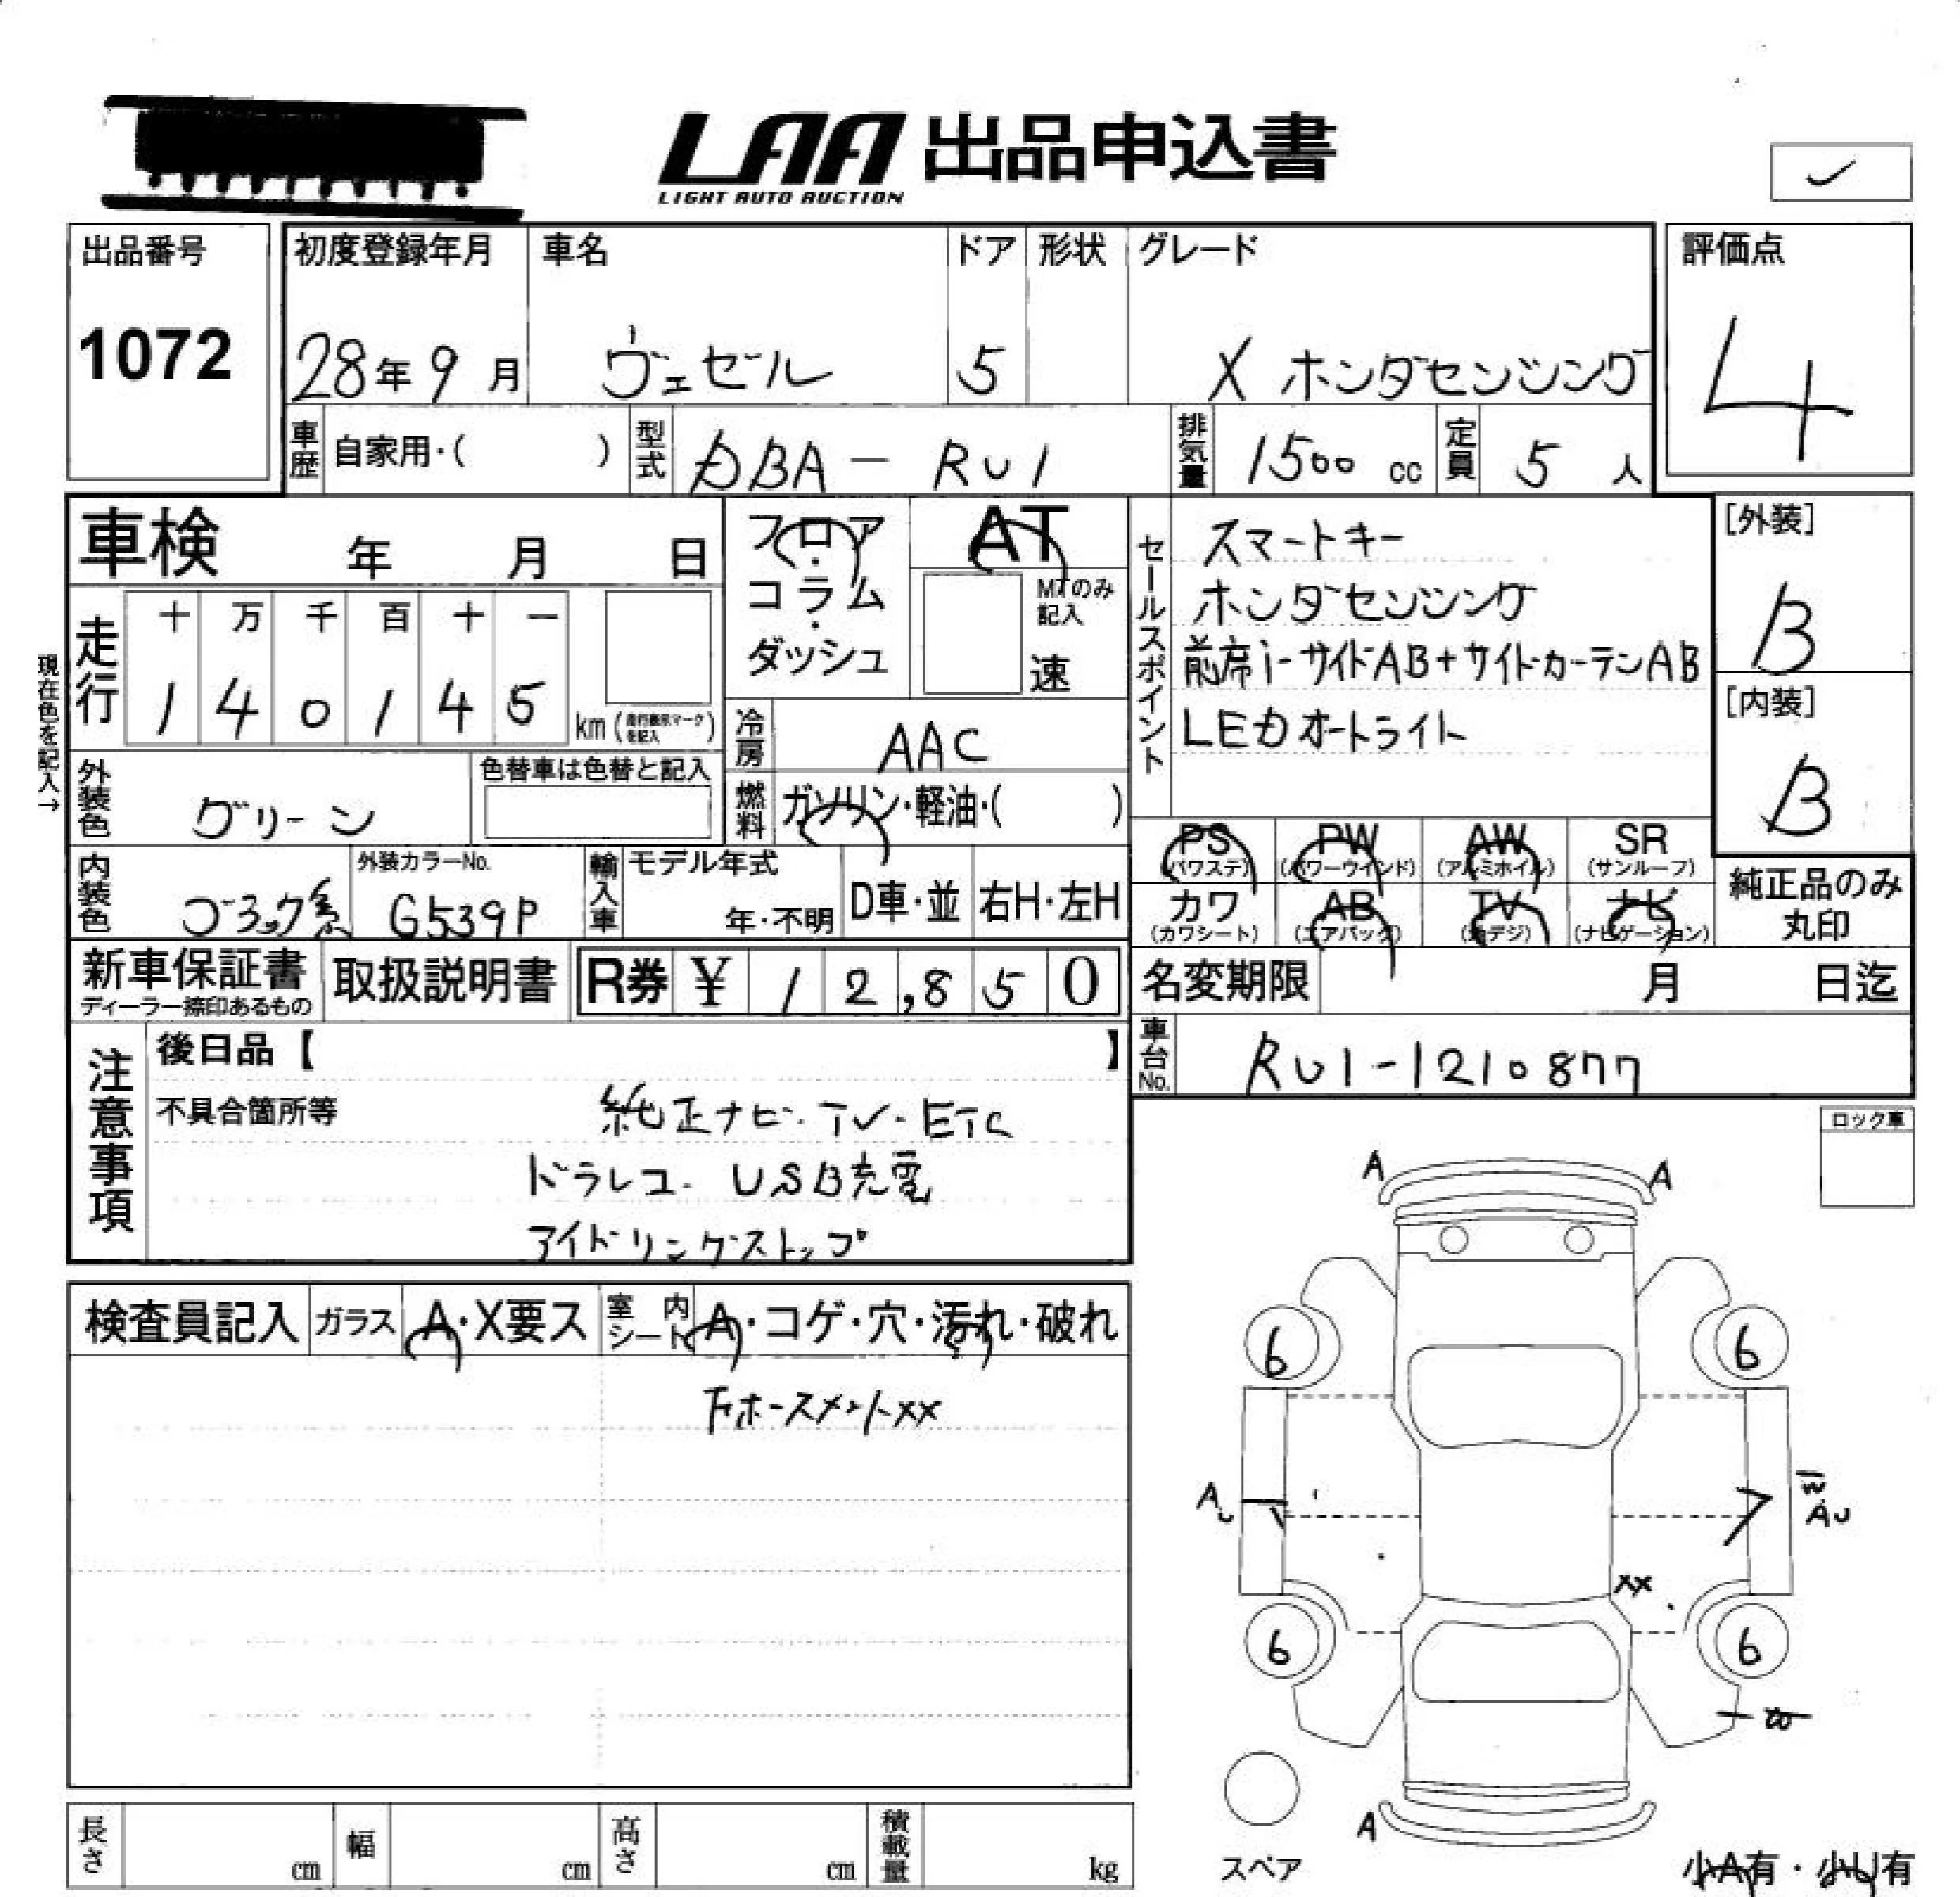 LAA 出品申込書
LIGHT AUTO AUCTION
出品番号
1072
初度登録年月
28年9月
車名
ヴェゼル
ドア
5
形状
グレード
X ホンダセンシング
評価点
4
車歴 自家用・( )
型式 DBA-RU1
排気量 1500 cc
定員 5 人
車検 年 月 日
フロア・コラム・ダッシュ
AT
MTのみ記入
速
セールスポイント
スマートキー
ホンダセンシング
前席i-サイドAB+サイドカーテンAB
LEDオートライト
[外装]
B
[内装]
B
現在色を記入→
走行
十 万 千 百 十 一
1 4 0 1 4 5
km (走行表示マークを記入)
冷房 AAC
外装色 グリーン
色替車は色替と記入
燃料 ガソリン・軽油・( )
PS (パワステ)
PW (パワーウインド)
AW (アルミホイル)
SR (サンルーフ)
カワ (カワシート)
AB (エアバック)
TV (地デジ)
ナビ (ナビゲーション)
純正品のみ丸印
内装色 ブラック系
外装カラーNo. G539P
輸入車
モデル年式
年・不明
D車・並
右H・左H
新車保証書
ディーラー捺印あるもの
取扱説明書
R券 ¥ 12,850
名変期限 月 日迄
車台No. RU1-1210877
注意事項
後日品【 】
不具合箇所等
純正ナビ・TV・ETC
ドラレコ・USB充電
アイドリングストップ
ロック車
検査員記入
ガラス A・X要ス
室内シート A・コゲ・穴・汚れ・破れ
下ホースメントxx
A A
6 6
A
AU
xx
6 6
A
スペア
小A有・小U有
長さ cm
幅 cm
高さ cm
積載量 kg